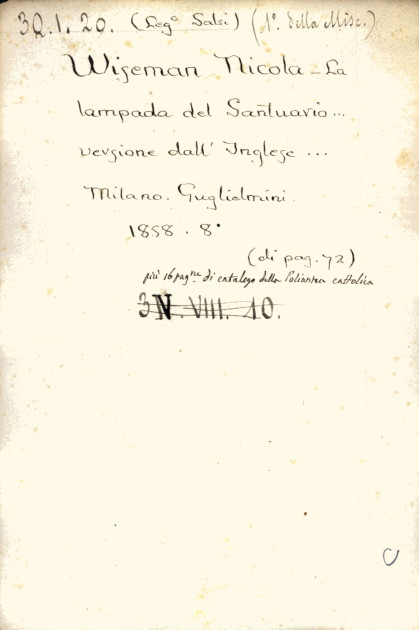 3Q.1.20. (Leg° Salsi) (1°. della Misc.)
Wiseman Nicola – La
lampada del Santuario...
versione dall' Inglese ...
Milano. Guglielmini.
1858. 8°
(di pag. 72)
più 16 pagne. di catalogo della Poliantea cattolica
3N.VIII.10.
C